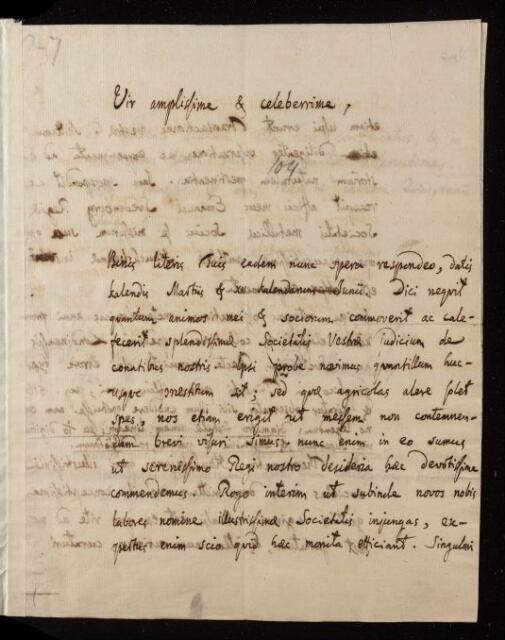 Vir amplissime & celeberrime,
104
Binis literis Tuis eadem nunc opera respondeo, datis
kalendis Martiis & kalendarum Junii. Dici nequit
quantum animos mei & sociorum commoverit ac cale-
fecerit splendissimæ Societatis Vestræ iudicium de
conatibus nostris. Ipsi probe novimus quantillum huc-
usque præstitum est; sed quæ agricolas alere solet
spes, nos etiam erigit ut messem non contemnen-
dam brevi visuri simus, nunc enim in eo sumus
ut serenissimo Regi nostro desideria hæc devotissime
commendemus. Rogo interim ut subinde novos nobis
labores nomine illustrissimæ Societatis injungas, ex-
pertus enim scio quid hæc monita efficiant. Singulari